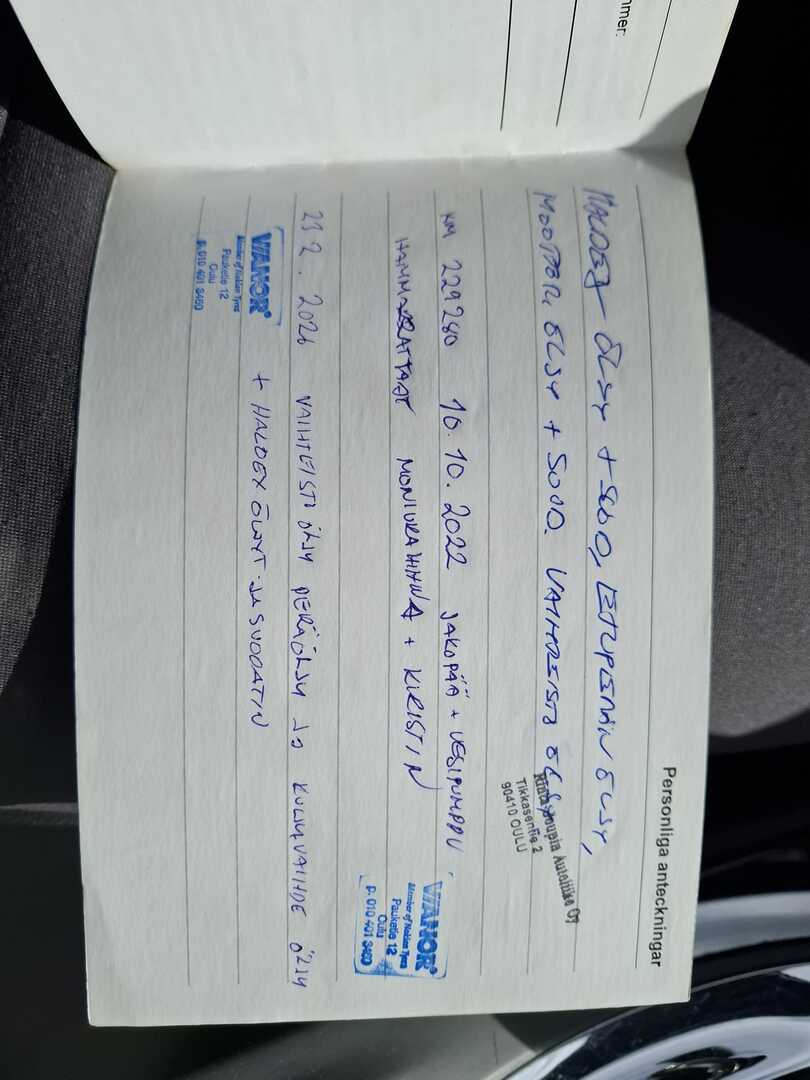 mmer:
Personliga anteckningar
HALDEX ÖLJY + SUOD, ETUPERÄN ÖLJY,
MOOTTORI ÖLJY + SUOD. VAIHTEISTO ÖLJY
Rinta-Joupin Autoliike Oy
Tikkasentie 2
90410 OULU
KM 229280 10.10.2022 JAKOPÄÄ + VESIPUMPPU,
HAMMASRATTAAT MONIURAHIHNA + KIRISTIN
VIANOR®
Member of Nokian Tyres
Pauketie 12
Oulu
P. 010 401 3460
23 2. 2026 VAIHTEISTO ÖLJY PERÄÖLJY JA KULMAVAIHDE ÖLJY
+ HALDEX ÖLJYT JA SUODATIN
VIANOR®
Member of Nokian Tyres
Pauketie 12
Oulu
P. 010 401 3460